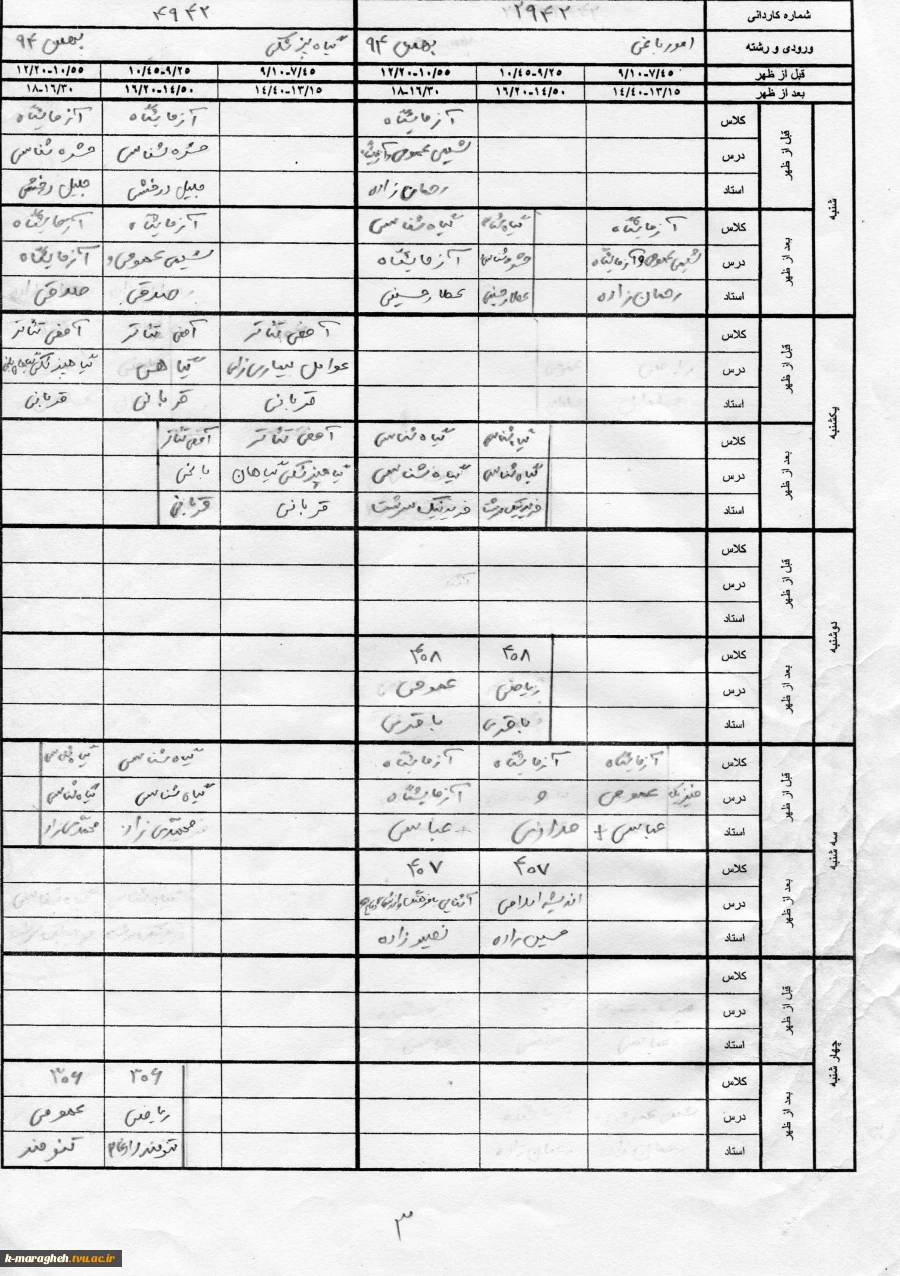 شماره کاردانی ۲۹۴۲ ۴۹۴۲
ورودی و رشته امور باغی بهمن ۹۴ گیاه پزشکی بهمن ۹۴
قبل از ظهر ۷/۴۵-۹/۱۰ ۹/۲۵-۱۰/۴۵ ۱۰/۵۵-۱۲/۲۰ ۷/۴۵-۹/۱۰ ۹/۲۵-۱۰/۴۵ ۱۰/۵۵-۱۲/۲۰
بعد از ظهر ۱۳/۱۵-۱۴/۴۰ ۱۴/۵۰-۱۶/۲۰ ۱۶/۳۰-۱۸ ۱۳/۱۵-۱۴/۴۰ ۱۴/۵۰-۱۶/۲۰ ۱۶/۳۰-۱۸
شنبه
قبل از ظهر
کلاس آزمایشگاه آزمایشگاه آزمایشگاه
درس شیمی عمومی و آزمایشگاه حشره شناسی حشره شناسی
استاد رحمان زاده جلیل درخشی جلیل درخشی
بعد از ظهر
کلاس آزمایشگاه گیاه شناسی آزمایشگاه آزمایشگاه
درس شیمی عمومی و آزمایشگاه آزمایشگاه شیمی عمومی و آزمایشگاه
استاد رحمان زاده عطار حسینی عطار حسینی صدقی صدقی
یکشنبه
قبل از ظهر
کلاس آمفی تئاتر آمفی تئاتر آمفی تئاتر
درس عوامل بیماری زای گیاهی
استاد قربانی قربانی قربانی
بعد از ظهر
کلاس گیاه شناسی گیاه شناسی آمفی تئاتر آمفی تئاتر
درس گیاه شناسی گیاه شناسی گیاهپزشکی گیاهان باغی
استاد فریدنیک سرشت فریدنیک سرشت قربانی قربانی
دوشنبه
قبل از ظهر
کلاس
درس
استاد
بعد از ظهر
کلاس ۴۰۸ ۴۰۸
درس ریاضی عمومی
استاد باقری باقری
سه شنبه
قبل از ظهر
کلاس آزمایشگاه آزمایشگاه آزمایشگاه گیاه شناسی گیاه شناسی
درس فیزیک عمومی و آزمایشگاه گیاه شناسی گیاه شناسی
استاد عباسی + عباسی محمدی زاد محمدی زاد
بعد از ظهر
کلاس ۴۰۷ ۴۰۷
درس اندیشه اسلامی آشنایی با فرهنگ و ارزشهای دفاع
استاد حسین زاده نصیرزاده
چهار شنبه
قبل از ظهر
کلاس
درس
استاد
بعد از ظهر
کلاس ۳۰۶ ۳۰۶
درس ریاضی عمومی
استاد تنومند تنومند
۳
k-maragheh.tvu.ac.ir